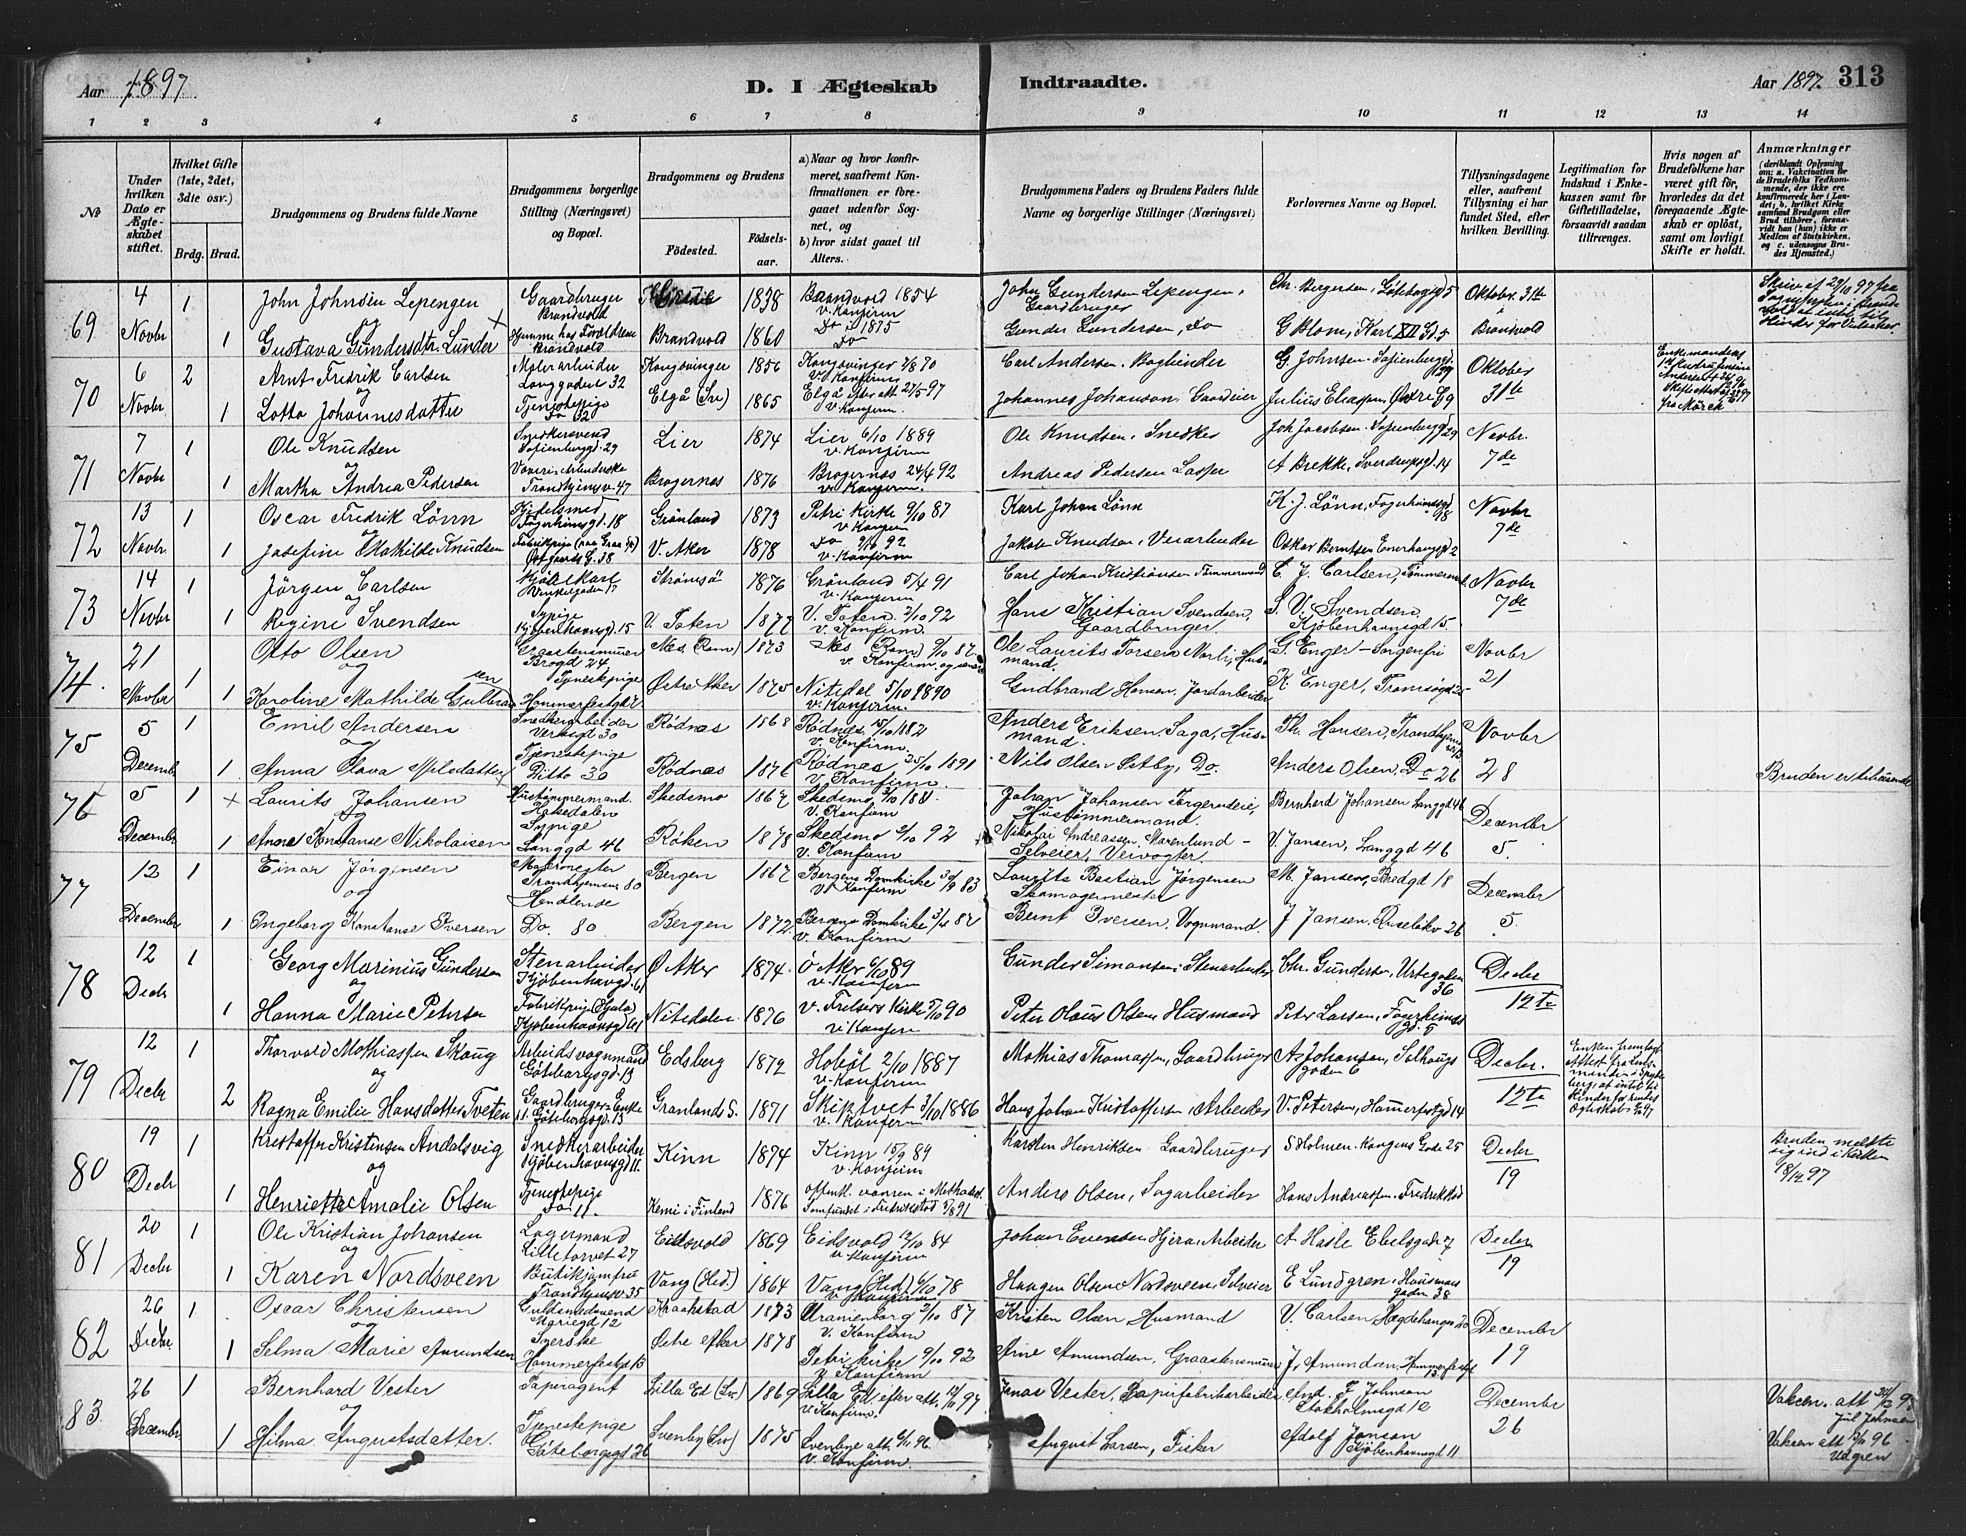 Aar 1897
D. I Ægteskab
Indtraadte.
Aar 1897. 313
1 2 3 4 5 6 7 8 9 10 11 12 13 14
No
Under hvilken Dato er Ægteskabet stiftet.
Hvilket Gifte (1ste, 2det, 3die osv.)
Brdg. Brud.
Brudgommens og Brudens fulde Navne
Brudgommens borgerlige Stilling (Næringsvei) og Bopæl.
Brudgommens og Brudens
Fødested.
Fødselsaar.
a) Naar og hvor konfirmeret, saafremt Konfirmationen er foregaaet udenfor Sognet, og
b) hvor sidst gaaet til Alters.
Brudgommens Faders og Brudens Faders fulde Navne og borgerlige Stillinger (Næringsvei)
Forlovernes Navne og Bopæl.
Tillysningsdagene eller, saafremt Tillysning ei har fundet Sted, efter hvilken Bevilling.
Legitimation for Indskud i Enkekassen samt for Giftetilladelse, forsaavidt saadan tiltrænges.
Hvis nogen af Brudefolkene har været gift før, hvorledes da det foregaaende Ægteskab er opløst, samt om lovligt Skifte er holdt.
Anmærkninger
(deriblandt Oplysning om: a. Vakcination for de Brudefolks Vedkommende, der ikke ere konfirmerede her i Landet; b. hvilket Kirkesamfund Brudgom eller Brud tilhører, forsaavidt han (hun) ikke er Medlem af Statskirken, og c. udensogns Brudes Hjemsted.)
69 4 Novbr 1 John Johnsen Lepengen Gaardbruger Brandvold 1838 Brandvold 1854 v. Konfirm John Gundersen Lepengen, Gaardbruger Chr. Bergersen, Oktober 31te
og
1 Gustava Gundersdtr. Lunder Hjemme hos Forældrene Brandvold Brandvold 1860 Do i 1875 Do Gunder Gundersen, Do G Blom, Karl XII Gd. 5 Brandvold
70 6 Novbr. 2 Arnt Fredrik Carlsen Malerarbeider Langgaden 32 Kongsvinger 1856 Kongsvinger 2/8 70 v. Konfirm Carl Andersen, Bogbinder G Johnsen, Sofienberggd. Oktober 31te
og
1 Lotta Johannesdatter Tjenestepige Do 32 Elgå (Sv) 1865 Elgå efter att 27/5 97 v. Konfirm. Johannes Johanson, Gaardeier Julius Eliassen,
71 7 Novbr 1 Ole Knudsen Snedkersvend Sofienberggd. 29 Lier 1874 Lier 6/10 1889 v. Konfirm Ole Knudsen, Snedker Joh Jacobsen, Sofienberggd 29 Novbr. 7de
og
1 Martha Andrea Pedersen Væveri-Arbeiderske Trondhjemsv. 47 Bragernæs 1876 Bragernæs 24/4 92 v. Konfirm. Andreas Pedersen Lasper A Brekke, Sverdrupsgd. 14
72 13 Novbr. 1 Oscar Fredrik Lönn Kjedelsmed Fagerheimsgd. 18 Grönland 1873 Petri Kirke 9/10 87 v Konfirm Karl Johan Lönn K. J. Lönn, Fagerheimsgd 18 Novbr 7de
og
1 Josefine Mathilde Knudsen V. Aker 1878 Do 9/10 92 v. Konfirm Jakob Knudsen, Veiarbeider Oskar Berntsen Enerhaugsgd 2
73 14 Novbr 1 Jörgen Carlsen Kjörekarl Vinkelgaden 17 Strömsö 1876 Grönland 5/4 91 v. Konfirm Carl Johan Kristiansen Tömmermand C. J. Carlsen, Tömmermand Novbr 7de
og
1 Regine Svendsen Sypige Kjöbenhavnsgd. 15 V. Toten 1877 V. Toten 2/10 92 v. Konfirm. Hans Kristian Svendsen, Gaardbruger. S. V. Svendsen Kjöbenhavnsgd 15
74. 21 Novbr 1 Otto Olsen Graastensmurer Brogd 24 Nes (Rom) 1873 Nes (Rom) 9/10 87 v. Konfirm. og senere Ole Laurits Torsen Norli, Husmand. G. Enger - Sorgenfri Novbr 21
og
1 Karoline Mathilde Gulbransen Tjenestepige Hammerfestgd Östre Aker 1875 Nitedal 5/10 1890 v. Konfirm. Gudbrand Hansen, Jordarbeider K. Enger, Tromsögd 25
75 5 Decembr 1 Emil Andersen Snedkerarbeider Verksgd 30 Rödnæs 1868 Rödnæs 15/10 1882 v. Konfirm. Anders Eriksen, Saga, Husmand. Th. Hansen, Trondhjemsv. Novbr 28
og
1 Anna Olava Nilsdatter Tjenestepige Ditto 30 Rödnæs 1876 Rödnæs 25/10 1891 v. Konfirm. Nils Olsen Sætby, Do. Anders Olsen, Do 26
Bruden er
76 5 Decembr 1 Laurits Johansen Hustömmermand. Hakedalen Skedsmo 1867 Skedsmo v. Konfirm Johan Johansen Hustömmermand. Bernhard Johansen Langgd 46 Decembr 5.
og
1 Anna Konstanse Nikolaisen Sypige Langgd 46 Röken 1878 Skedsmo 9/10 92 v. Konfirm Nikolai Andreassen Marenlund - Selveier, Veivogter. V. Jansen, Langgd 46
77 12 Decembr 1 Einar Jörginsen Malermester Trondhjemsv 80 Bergen 1867 Bergens Domkirke 30/9 83 v. Konfirm Laurits Bastian Jörgensen Skomagermester M. Jansen, Bredgd 18 Decembr 5.
og
1 Ingeborg Konstanse Iversen Handlende Do. 80 Bergen 1872. Bergens Domkirke 3/4 87 v. Konfirm Bernt Iversen, Vognmand. J Jansen, Ruselökv 26
78 12 Decbr 1 Georg Marinius Gundersen Stenarbeider Kjöbenhavngd. 61 Ö Aker 1874. Ö Aker 6/10 89 v. Konfirm Gunder Simonsen, Stenarbeider Chr. Gundersen, Urtegaden 36 Decbr 12te
og
1 Hanna Marie Petersen Fabrikpige Kjöbenhavnsgd 61 Nitedalen 1876 v. Frelsers Kirke 5/10 90 v. Konfirm Peter Olaus Olsen Husmand Peter Larsen, Fagerheimsgd. 5
79 12 Decbr 1 Thorvald Mathiassen Skaug Arbeidsvognmand Göteborgsgd. 13 Edsberg 1872 Hoböl 2/10 1887 v. Konfirm Mathias Thomassen, Gaardbruger A. Johansen, Solhaugsgaden 6 Decbr. 12te
og
2 Ragna Emilie Hansdatter Tveten Gaardbruger-Enke Göteborgsgd. 13 Grønlands S. 1871 Skiptvet 3/10 1886 v. Konfirm Hans Johan Kristoffersen, Arbeider V. Petersen, Hammerfestgd 14
80 19 Decbr 1 Kristoffer Kristensen Andalsvig Snedkerarbeider Kjöbenhavnsgd 11. Kinn 1874 Kinn 15/9 89 v. Konfirm Karsten Henriksen, Gaardbruger S Holmen, Kongens Gade 25 Decbr 19
og
1 Henriette Amalie Olsen Tjenestepige Do 11. Kemi i Finland 1876 Samfundet i Fredriksstad Anders Olsen, Sagarbeider Hans Andreassen, Fredriksstad
Bruden meldte sig ind i Kirken 18/12 97
81 20 Decbr 1 Ole Kristian Johansen Lagermand Lilletorvet 27 Eidsvold 1869 Eidsvold 12/10 84 v. Konfirm Johan Evensen Hjera, Arbeider A Hasle Ebelsgade 7 Decbr 19
og
1 Karen Nordsveen Butikjomfru Trondhjemsv. 35 Vang (Hed.) 1864 Vang (Hed) 6/10 78 v. Konfirm Haagen Olsen Nordsveen, Selveier E Lundgren, Hausmansgaden 38
82 26 Decbr. 1 Oscar Christensen Guldsmedsvend Mariegd 12 Kraakstad 1873 Uranienborg 2/10 87 v. Konfirm Kristen Olsen Husmand V. Carlsen Hegdehaugen 20 December 19
og
1 Selma Marie Amundsen Syerske Hammerfestgd 13 Östre Aker 1878 Petri kirke 9/10 92 v Konfirm Arne Amundsen, Graastensmurer J. Amundsen, Hammerfestgd
83. 26 Decembr 1 Bernhard Vester Papiragent Lilla Ed (Sv.) 1869 Lilla Ed. efter att. v. Konfirm. Jonas Vester, Papirfabrikarbeider And. F Johnson Stokholmsgd 12 Decembr 26
og
1 Hilma Augustsdatter. Tjenestepige Göteborgsgd 26 Svenby (Sv) 1875 Svenbye att. 6/11 96. v. Konfirm. August Larsen, Fisker Adolf Janson Kjöbenhavnsgd 11
Vakcin. att
Vakcin att